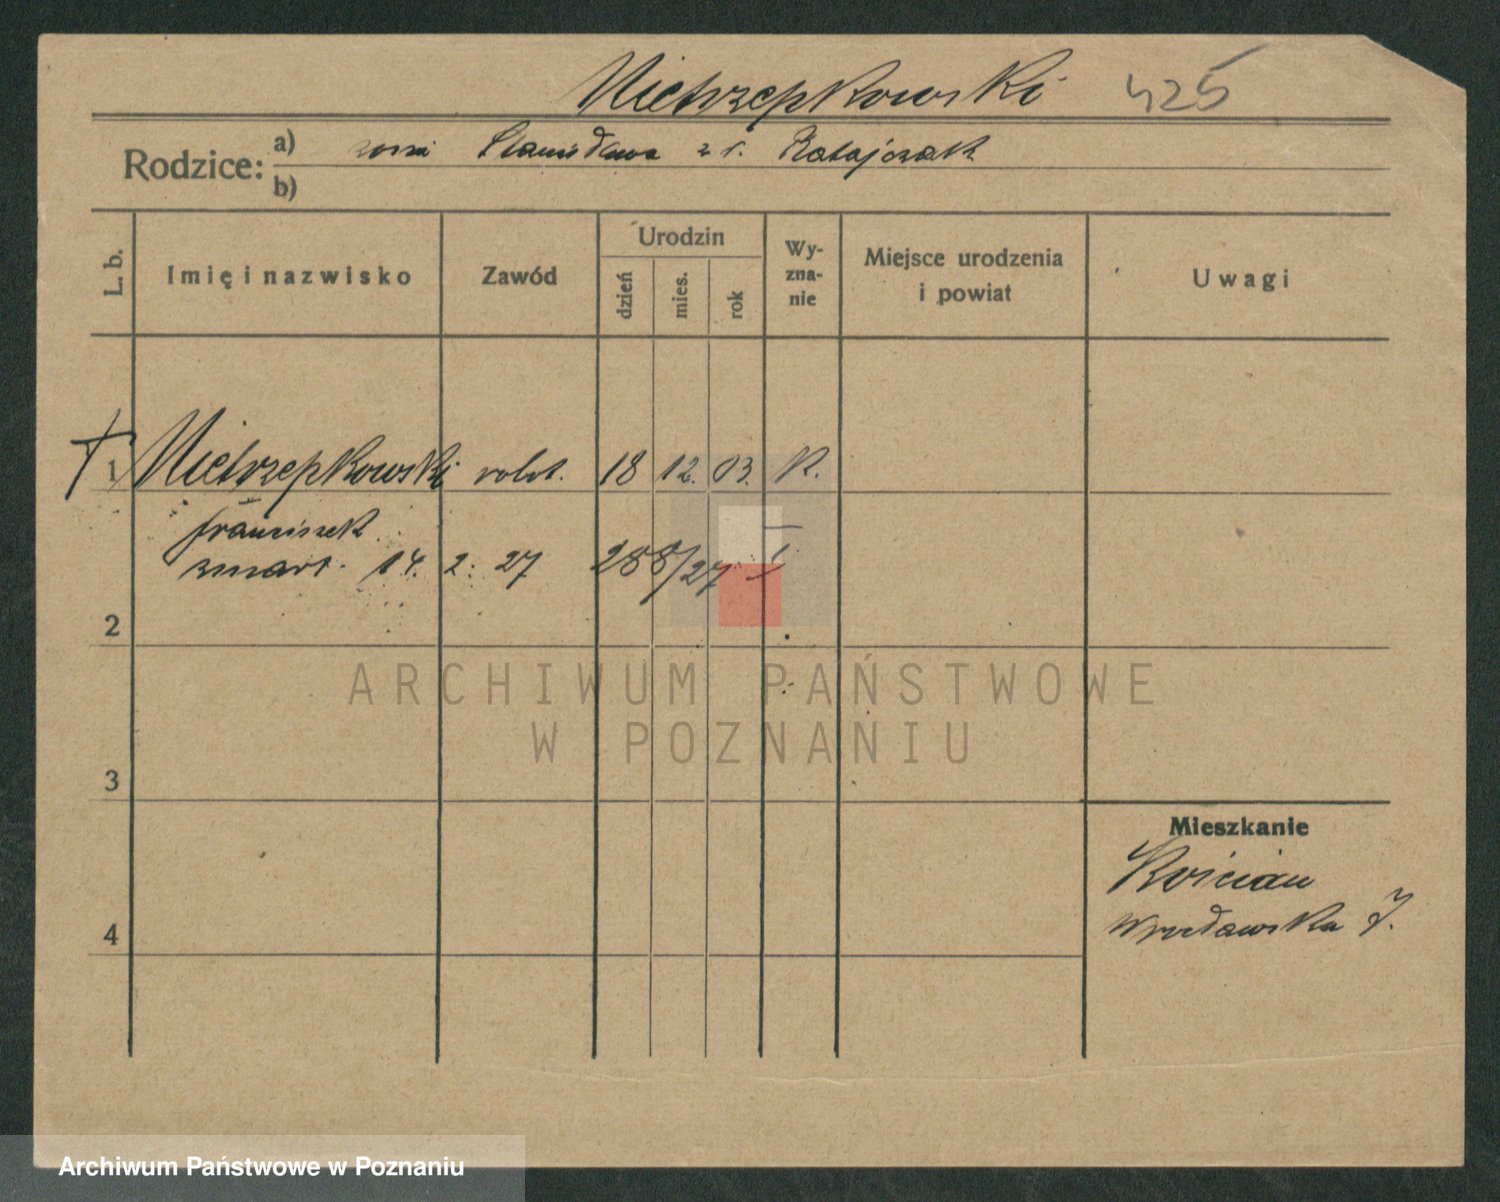 Nietrzepkowski 425
Rodzice: a) Stanisława z r. Ratajczak
b)
L. b. Imię i nazwisko Zawód Urodzin dzień mies. rok Wyzna-nie Miejsce urodzenia i powiat Uwagi
1 Nietrzepkowski robot. 18 12. 03. K.
Franciszek
zmarł. 14. 2. 27 288/27 †
2
ARCHIWUM PAŃSTWOWE
W POZNANIU
3
Mieszkanie
Kościan
Wrocławska 7.
4
Archiwum Państwowe w Poznaniu